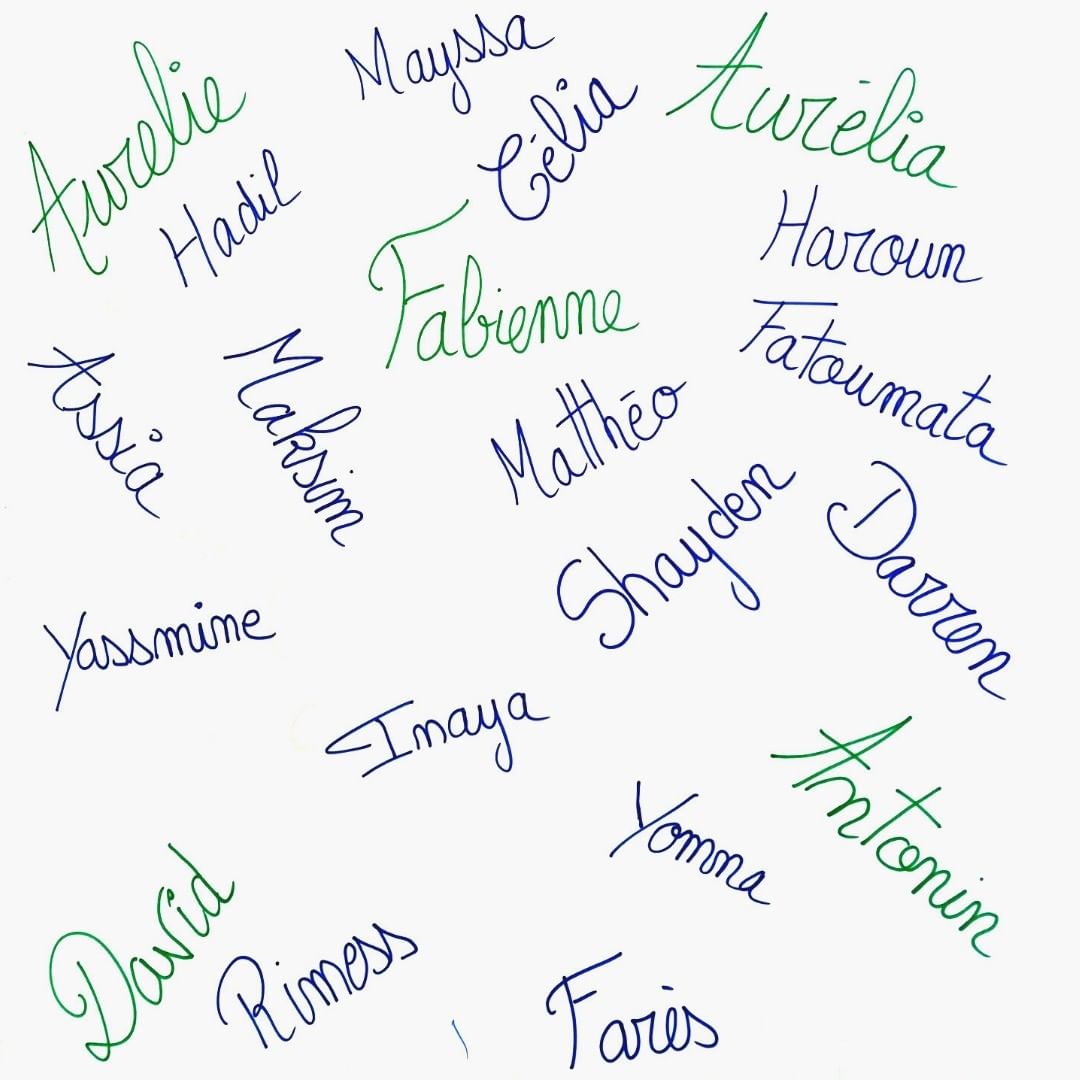 Mayssa
Aurelie
Célia
Aurélia
Hadil
Haroun
Fabienne
Fatoumata
Assia
Maksim
Matthéo
Shayden
Darren
Yassmine
Imaya
Antonin
Yomna
David
Rimess
Farès